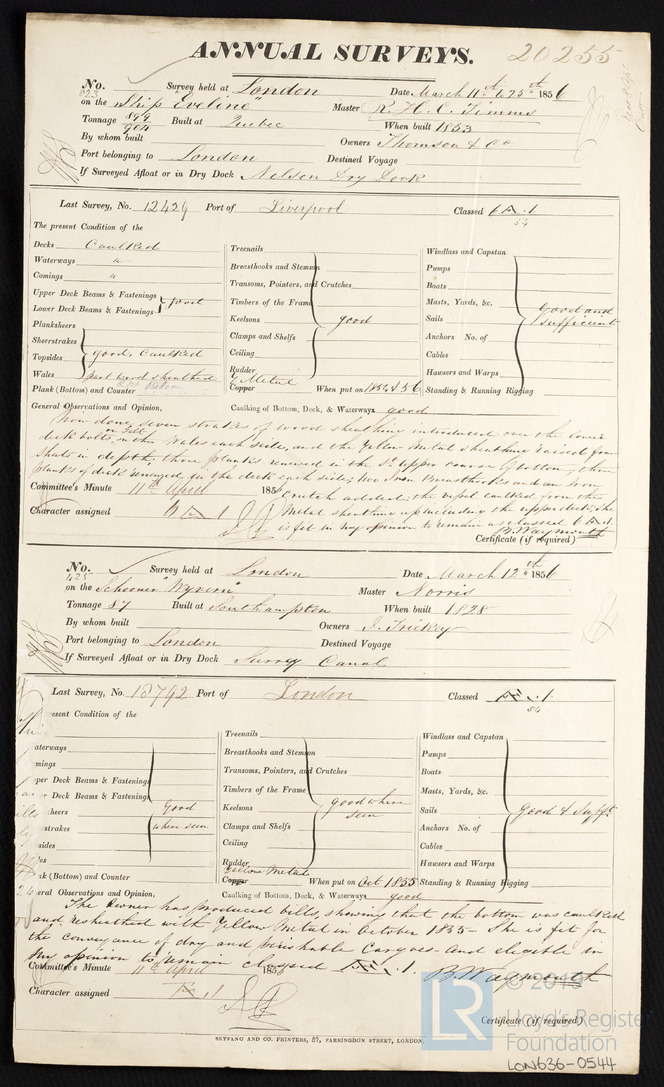 ANNUAL SURVEYS.
20255
No. 823 Survey held at London Date March 11th & 25th 1856
on the Ship "Eveline" Master R. H. C. Timms
Tonnage 899 904 Built at Quebec When built 1853
By whom built Owners Thomson & Co
Port belonging to London Destined Voyage
If Surveyed Afloat or in Dry Dock Nelson Dry Dock
Last Survey, No. 12429 Port of Liverpool Classed 6 A.1
54
The present Condition of the
Decks Caulked
Waterways "
Comings "
Upper Deck Beams & Fastenings
Lower Deck Beams & Fastenings good
Planksheers
Sheerstrakes
Topsides good, Caulked
Wales part wood sheathed
Plank (Bottom) and Counter
Treenails
Breasthooks and Stemson
Transoms, Pointers, and Crutches
Timbers of the Frame
Keelsons good
Clamps and Shelfs
Ceiling
Rudder
Y Metal
Copper When put on 1852, & 56
Caulking of Bottom, Deck, & Waterways good
Windlass and Capstan
Pumps
Boats
Masts, Yards, &c. Good and
Sails Sufficient
Anchors No. of
Cables
Hawsers and Warps
Standing & Running Rigging
General Observations and Opinion,
Now done, seven strakes of wood sheathing introduced over the lower
on Felt
deck bolts, on the Wales each side, and the Yellow Metal sheathing raised four
sheets in depth three planks renewed in the upper course of bottom, three
planks of deck renewed in the deck each side, two Iron Breasthooks and an Iron
Committee's Minute 11th April 1856 Crutch added, the vessel caulked from the
Metal sheathing up including the upper deck, She
Character assigned 6 A 1 is fit in my opinion to remain as classed 6 A.1.
B. Waymouth
Certificate (if required)
No. 425 Survey held at London Date March 12th 1856
on the Schooner "Wyvern" Master Norris
Tonnage 87 Built at Southampton When built 1828
By whom built Owners J. Trickey
Port belonging to London Destined Voyage
If Surveyed Afloat or in Dry Dock Surrey Canal
Last Survey, No. 18792 Port of London Classed Æ.1
54
resent Condition of the
aterways
mings
per Deck Beams & Fastenings
er Deck Beams & Fastenings
sheers Good
strakes where seen
sides
es
nk (Bottom) and Counter
Treenails
Breasthooks and Stemson
Transoms, Pointers, and Crutches
Timbers of the Frame
Keelsons good where
seen
Clamps and Shelfs
Ceiling
Rudder
Yellow Metal
Copper When put on Oct 1855
Caulking of Bottom, Deck, & Waterways good
Windlass and Capstan
Pumps
Boats
Masts, Yards, &c.
Sails Good & Suffт.
Anchors No. of
Cables
Hawsers and Warps
Standing & Running Rigging
eral Observations and Opinion,
The Owner has produced bills, showing that the bottom was caulked
and resheathed with Yellow Metal in October 1855 – She is fit for
the conveyance of dry and perishable Cargoes – And eligible in
my opinion to remain classed Æ.1.
Committee's Minute 11th April 1856 B. Waymouth
Character assigned Æ 1
Certificate (if required)
SEYFANG AND CO. PRINTERS, 87, FARRINGDON STREET, LONDON.
LR © 2018
Lloyd's Register
Foundation
LON636-0544